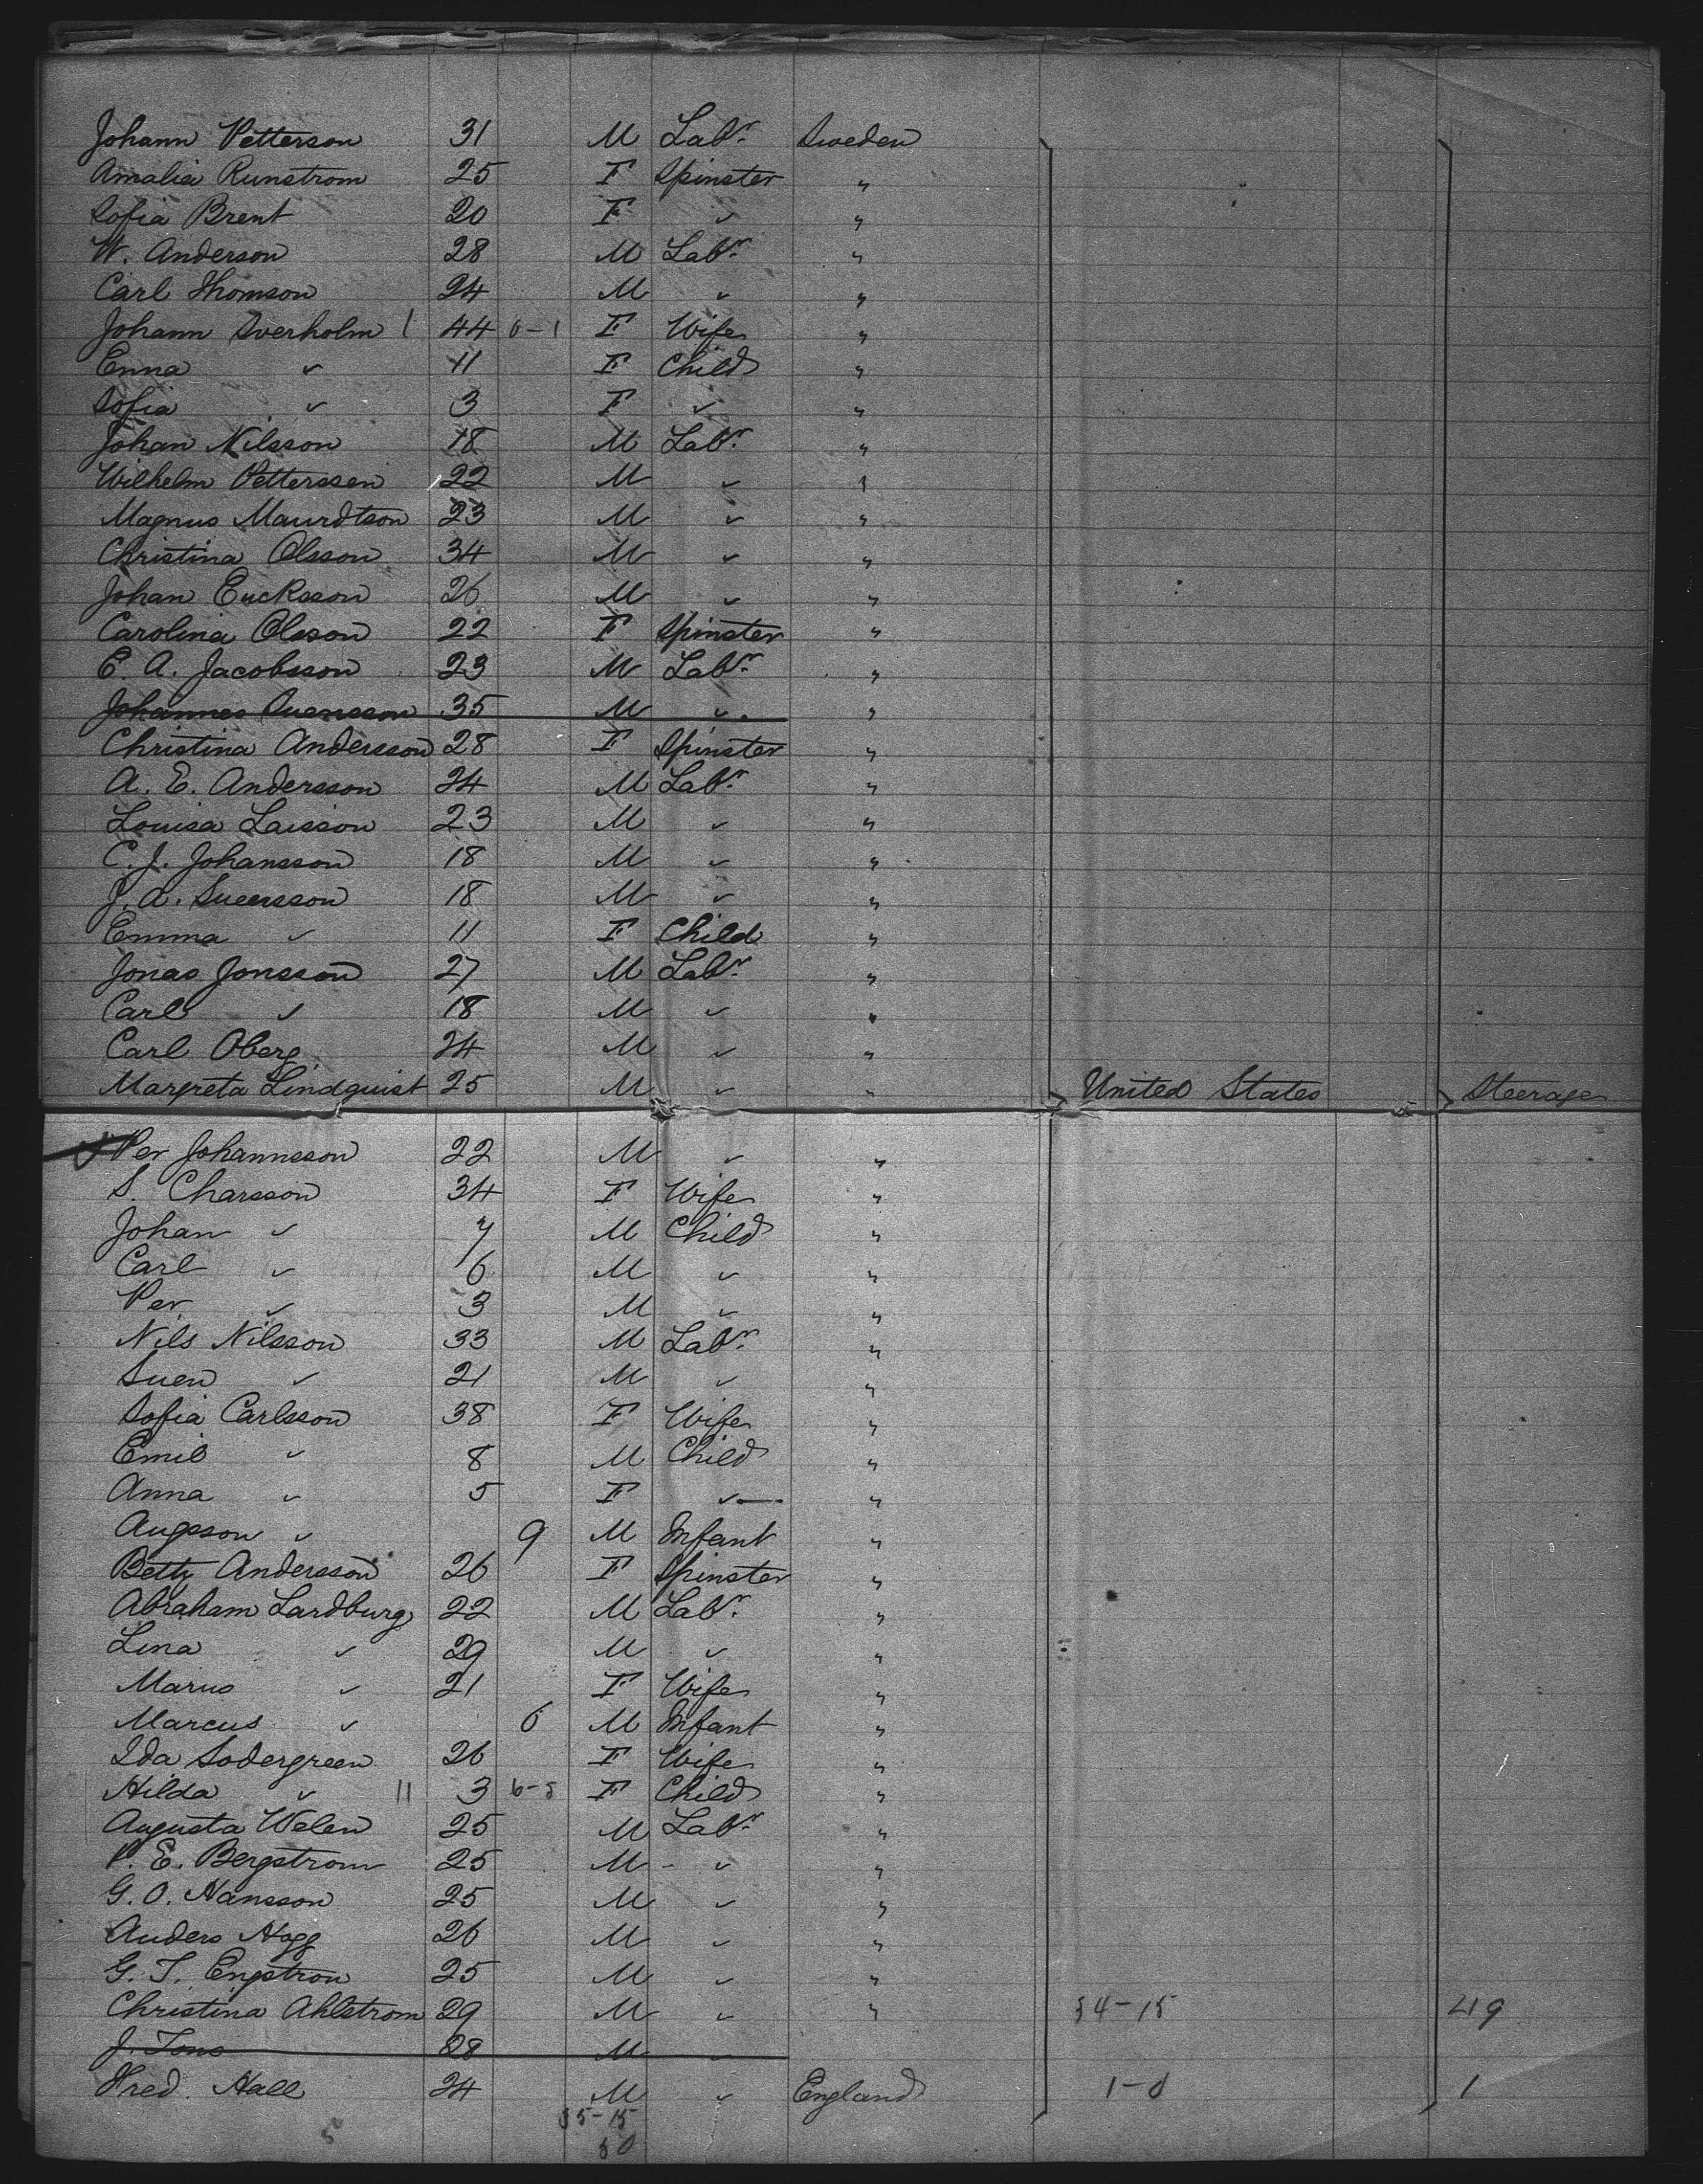 Johann Petterson 31 M Labr. Sweden
Amalia Runstrom 25 F Spinster "
Sofia Brent 20 F " "
W. Anderson 28 M Labr. "
Carl Thomson 24 M " "
Johann Sverholm 1 44 6-1 F Wife "
Enna " 11 F Child "
Sofia " 3 F " "
Johan Nilsson 18 M Labr. "
Wilhelm Petterssen 22 M " "
Magnus Maurdtson 23 M " "
Christina Olsson 34 M " "
Johan Eucksson 26 M " "
Carolina Olsson 22 F Spinster "
E. A. Jacobsson 23 M Labr. "
Johannes Suensson 35 M " "
Christina Andersson 28 F Spinster "
A. E. Andersson 24 M Labr. "
Louisa Laisson 23 M " "
C. J. Johansson 18 M " "
J. A. Suensson 18 M " "
Emma " 11 F Child "
Jonas Jonsson 27 M Labr. "
Carl " 18 M " "
Carl Oberg 24 M " "
Margreta Lindquist 25 M " " United States Steerage
Per Johannsson 22 M " "
S. Charsson 34 F Wife "
Johan " 7 M Child "
Carl " 6 M " "
Per " 3 M " "
Nils Nilsson 33 M Labr. "
Suen " 21 M " "
Sofia Carlsson 38 F Wife "
Emil " 8 M Child "
Anna " 5 F " "
Augsson " 9 M Infant "
Betty Andersson 26 F Spinster "
Abraham Lardburg 22 M Labr. "
Lina " 29 M " "
Marus " 21 F Wife "
Marcus " 6 M Infant "
Ida Sodergreen 26 F Wife "
Hilda " 11 3 6-5 F Child "
Augusta Welen 25 M Labr. "
P. E. Bergstrom 25 M " "
G. O. Hansson 25 M " "
Anders Hagg 26 M " "
G. T. Engstron 25 M " "
Christina Ahlstrom 29 M " " 34-15 49
J. Tons 28 M "
Fred. Hall 24 M " England 1-0 1
35-15
50